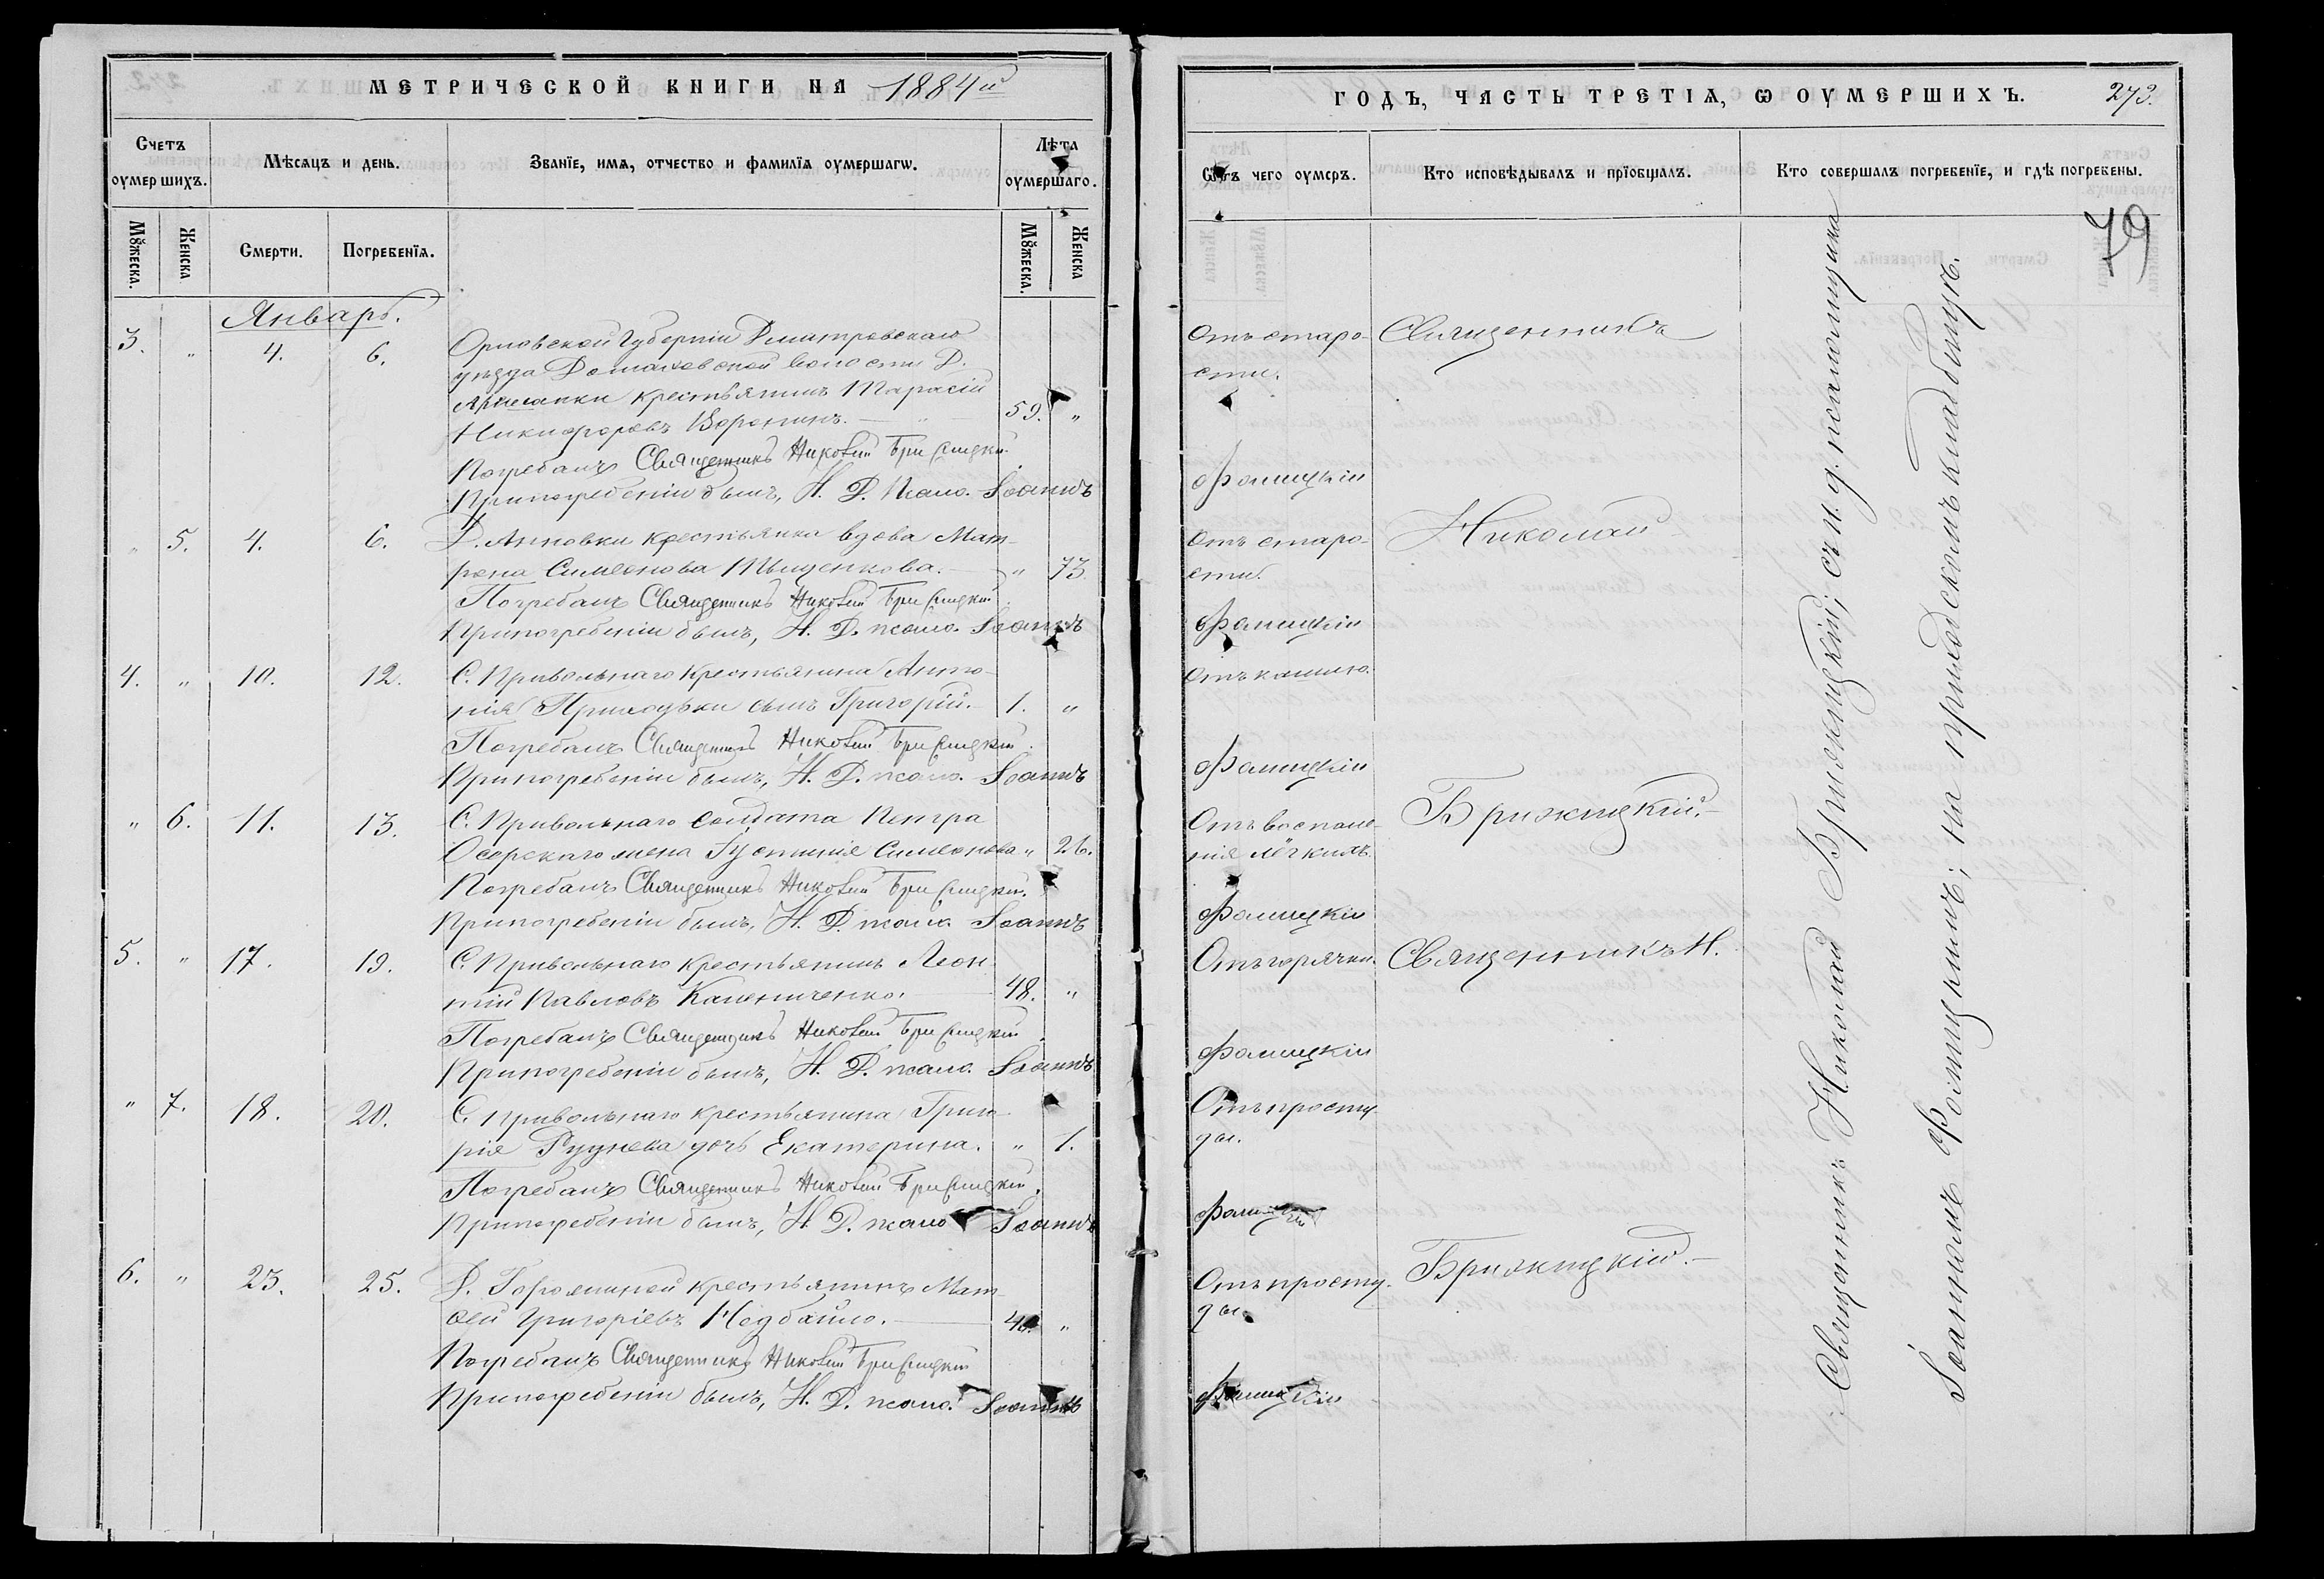 МЕТРИЧЕСКОЙ КНИГИ НА 1884й
Счетъ оумершихъ.
Мѣсяцъ и день.
Званїе, имѧ, отчество и фамилїѧ оумершагѡ.
Лѣта оумершаго.
Мꙋжеска.
Женска
Смерти.
Погребенїѧ.
Мꙋжеска.
Женска
Январь.
3. " 4. 6. Орловской Губерніи Дмитровскаго
уѣзда Домаховской волости Д.
крестьянинъ Тарасій
Никифоровъ Воронинъ. 59. "
Погребалъ Священникъ Николай Брижицкій
При погребеніи былъ, И. Д. псало. Іоаннъ
" 5. 4. 6. Д. Анновки крестьянка вдова Мат-
рона Симеонова Тыщенкова. " 73
Погребалъ Священникъ Николай Брижицкій
При погребеніи былъ, И. Д. псало. Іоаннъ
4. " 10. 12. С. Привольнаго крестьянина Анто-
нія Приходьки сынъ Григорій. 1. "
Погребалъ Священникъ Николай Брижицкій.
При погребеніи былъ, И. Д. псало. Іоаннъ
" 6. 11. 13. С. Привольнаго солдата Петра
Осерскаго жена Іустинія Симеонова " 26.
Погребалъ Священникъ Николай Брижицкій.
При погребеніи былъ, И. Д. псало. Іоаннъ
5. " 17. 19. С. Привольнаго крестьянинъ Леон-
тій Павловъ Калениченко. 48. "
Погребалъ Священникъ Николай Брижицкій.
При погребеніи былъ, И. Д. псало. Іоаннъ
" 7. 18. 20. С. Привольнаго крестьянина Григо-
рія Руднева дочь Екатерина. " 1.
Погребалъ Священникъ Николай Брижицкій.
При погребеніи былъ, И. Д. псало. Іоаннъ
6. " 23. 25. Д. крестьянинъ Мат-
ѳей Григоріевъ Недбайло. "
Погребалъ Священникъ Николай Брижицкій
При погребеніи былъ, И. Д. псало. Іоаннъ
ГОДЪ, ЧАСТЬ ТРЕТІѦ, Ѡ ОУМЕРШИХЪ. 273.
Ѿъ чего оумеръ.
Кто исповѣдывалъ и прїобщалъ.
Кто совершалъ погребенїе, и гдѣ погребены.
79
Отъ старо-
сти.
Фалицкій
Отъ старо-
сти.
Фалицкій
Отъ кашлю.
Фалицкій
Отъ воспале-
нія лёгкихъ.
Фалицкій
Отъ горячки.
Фалицкій
Отъ просту-
ды.
Фалицкій
Отъ просту-
ды.
Фалицкій
Священникъ
Николай
Брижицкій.
Священникъ Н.
Брижицкій.
Священникъ Николай Брижицкій; съ и. д. псаломщика
Іоанномъ Фалицкимъ; на приходскомъ кладбищѣ.